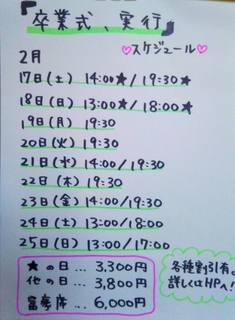 『卒業式、実行』
♡スケジュール♡
2月
17日(土) 14:00★/19:30★
18日(日) 13:00★/18:00★
19日(月) 19:30
20日(火) 19:30
21日(水) 14:00/19:30
22日(木) 19:30
23日(金) 14:00/19:30
24日(土) 13:00/18:00
25日(日) 13:00/17:00
★の日…3,300円
他の日…3,800円
富豪席…6,000円
各種割引有。
詳しくはHPへ!